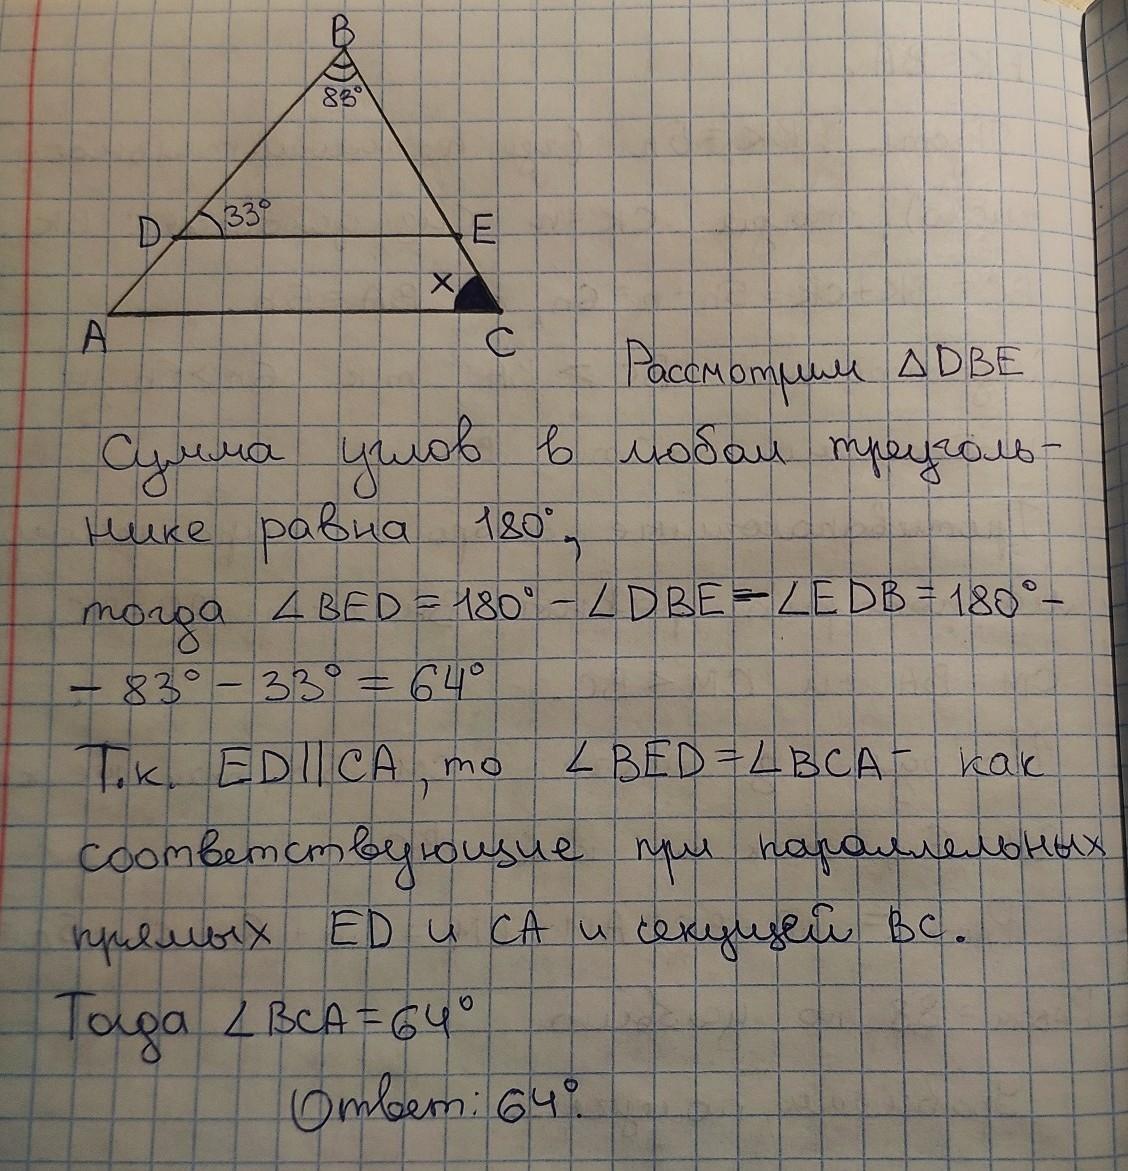 B
83°
D 33° E
x
A C
Рассмотрим ΔDBE
Сумма углов в любом треуголь-
нике равна 180°,
тогда ∠BED = 180° - ∠DBE - ∠EDB = 180° -
- 83° - 33° = 64°
Т.к. ED||CA, то ∠BED = ∠BCA - как
соответствующие при параллельных
прямых ED и CA и секущей BC.
Тогда ∠BCA = 64°
Ответ: 64°.